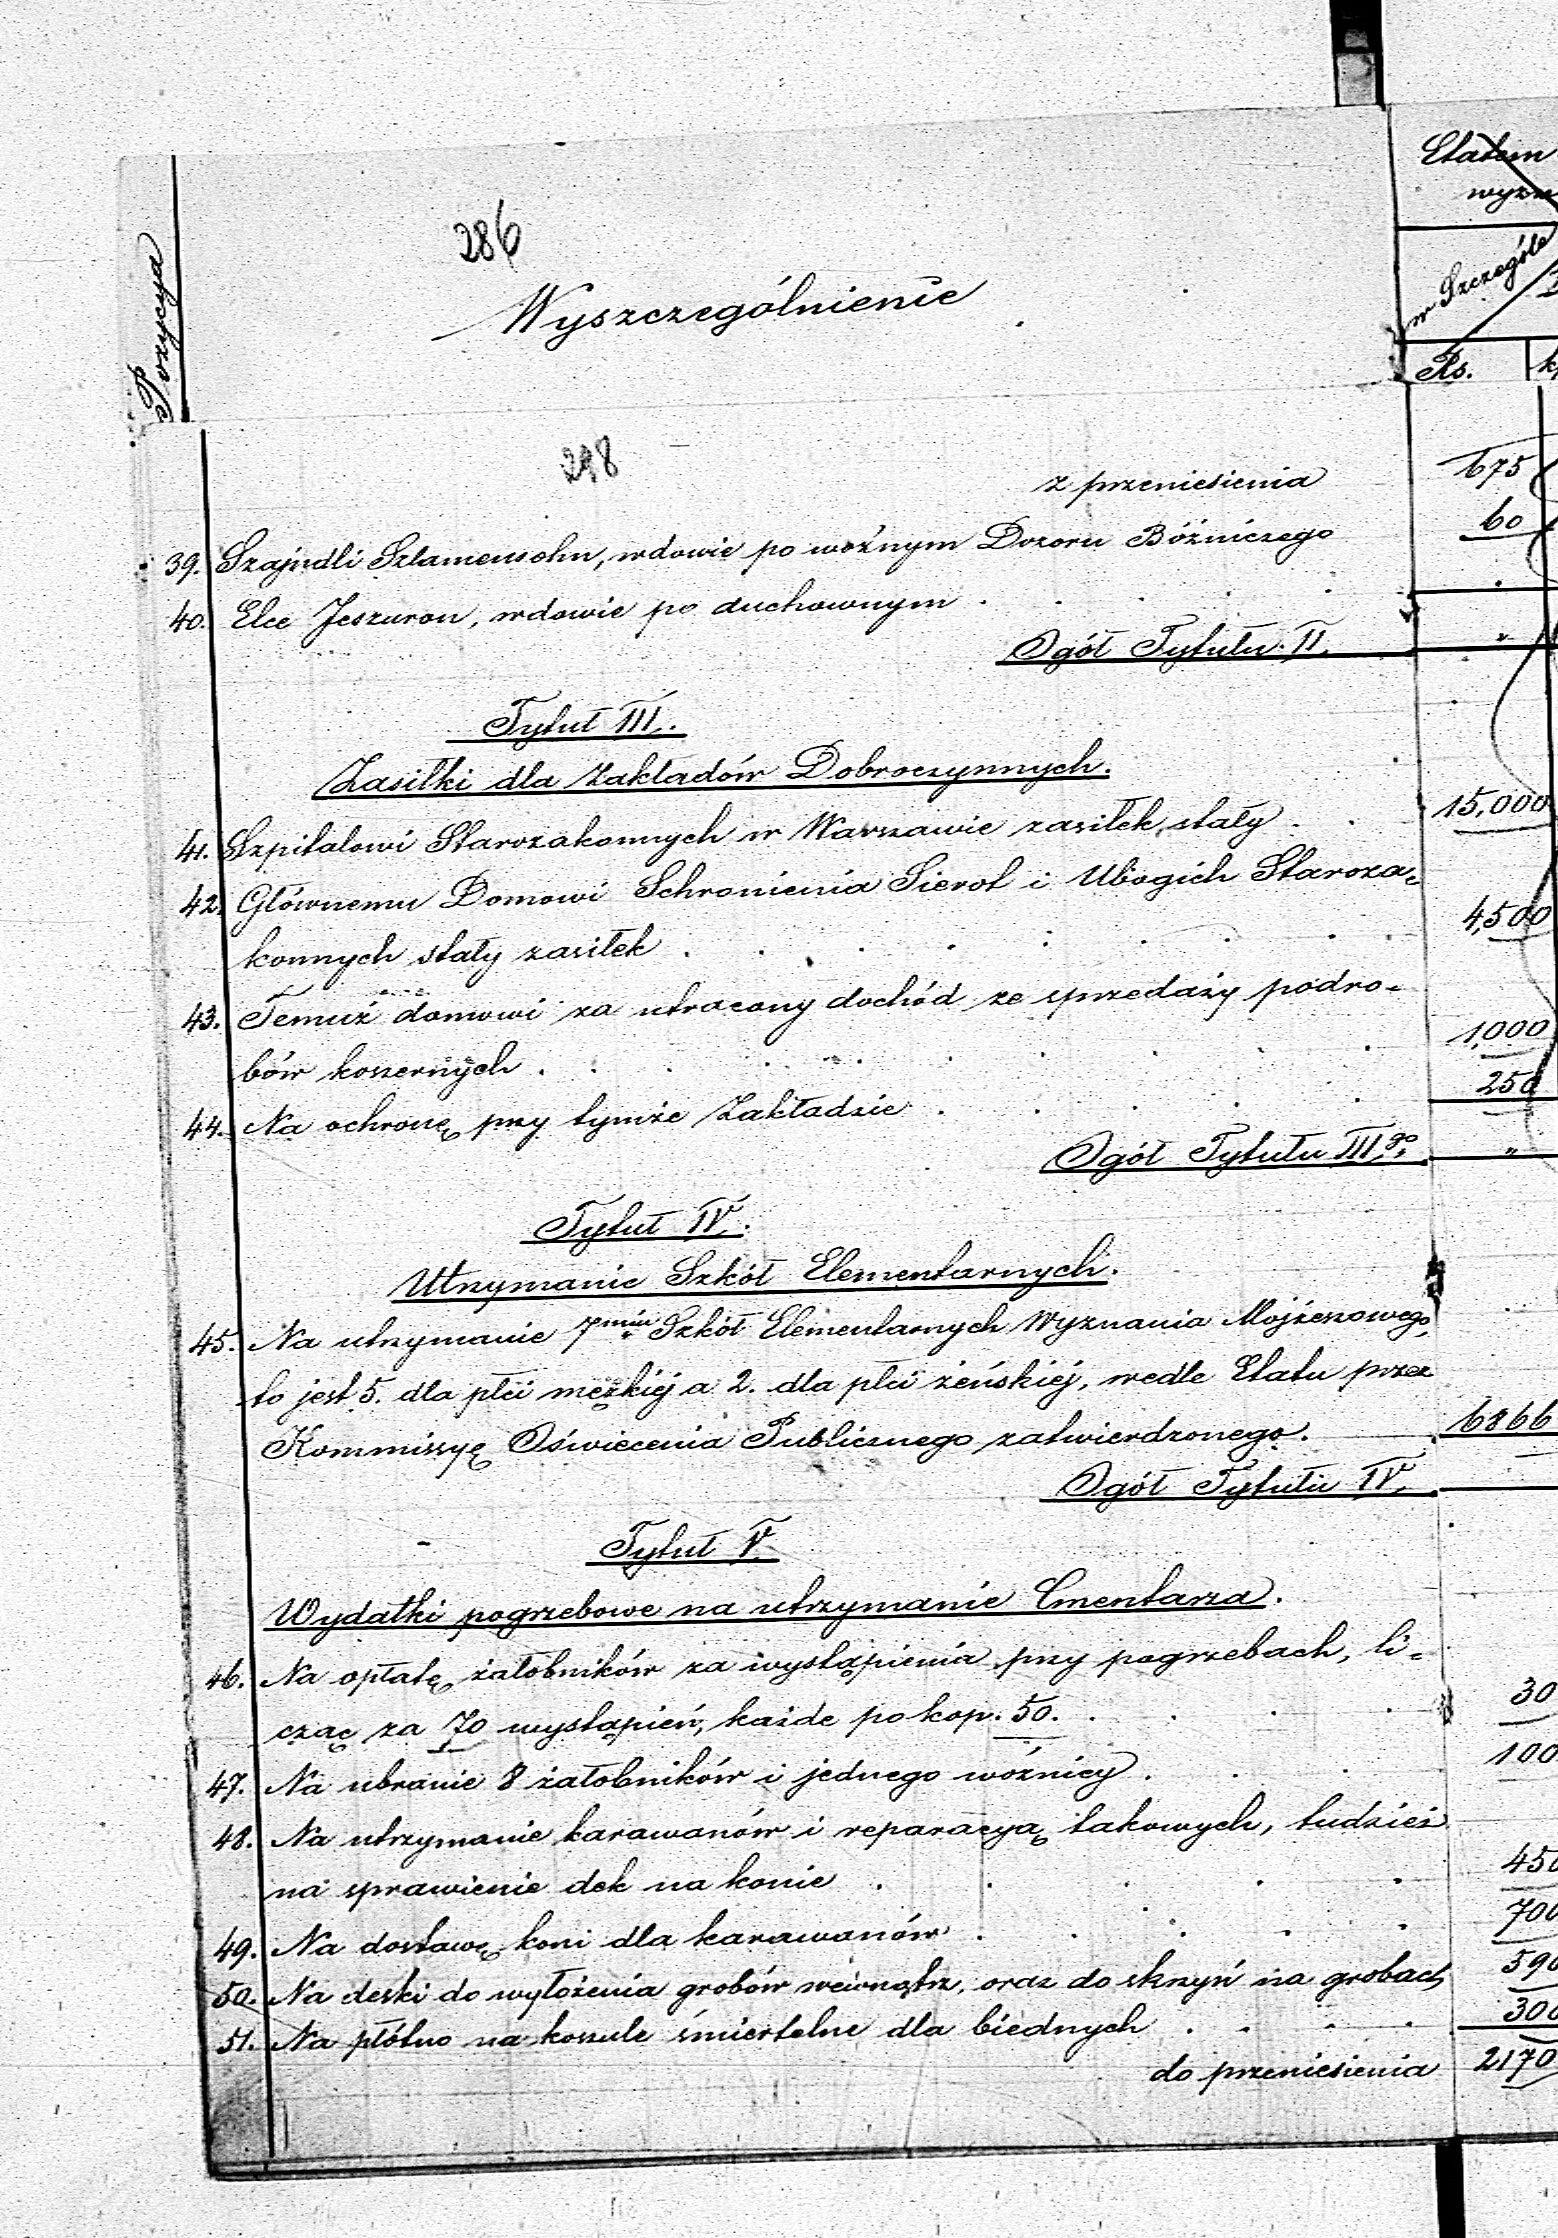 Etatem
wyzn
286
Pozycya
Wyszczególnienie
w Szczególe
Rs.
k
298
z przeniesienia 675
39. Szajndli Szlamensohn, wdowie po woźnym Dozoru Bóźniczego 60
40. Elce Jeszuron, wdowie po duchownym . . . . . .
Ogół Tytułu II. "
Tytuł III.
Zasiłki dla Zakładów Dobroczynnych.
41. Szpitalowi Starozakonnych w Warszawie zasiłek stały . . 15,000
42. Głównemu Domowi Schronienia Sierot i Ubogich Staroza=
konnych stały zasiłek . . . . . . . . 4,500
43. Temuż domowi za utracony dochód ze sprzedaży podro=
bów koszernych . . . . . . . . 1,000
44. Na ochronę przy tymże Zakładzie . . . . . 250
Ogół Tytułu III.go "
Tytuł IV.
Utrzymanie Szkół Elementarnych.
45. Na utrzymanie 7miu Szkół Elementarnych Wyznania Mojżeszowego,
to jest 5. dla płci męzkiéj a 2. dla płci żeńskiéj, wedle Etatu przez
Kommissyę Oświecenia Publicznego zatwierdzonego. 6866
Ogół Tytułu IV.
Tytuł V
Wydatki pogrzebowe na utrzymanie Cmentarza.
46. Na opłatę żałobników za wystąpienia przy pogrzebach, li=
cząc za 70 wystąpień, każde po kop. 50. . . . . 30
47. Na ubranie 8 żałobników i jednego woźnicy . . . . 100
48. Na utrzymanie karawanów i reparacyą takowych, tudzież
na sprawienie dek na konie . . . . . 450
49. Na dostawę koni dla karawanów . . . . . 700
50. Na deski do wyłożenia grobów wewnątrz, oraz do skrzyń na grobach 590
51. Na płótno na koszule śmiertelne dla biednych . . . . 300
do przeniesienia 2170